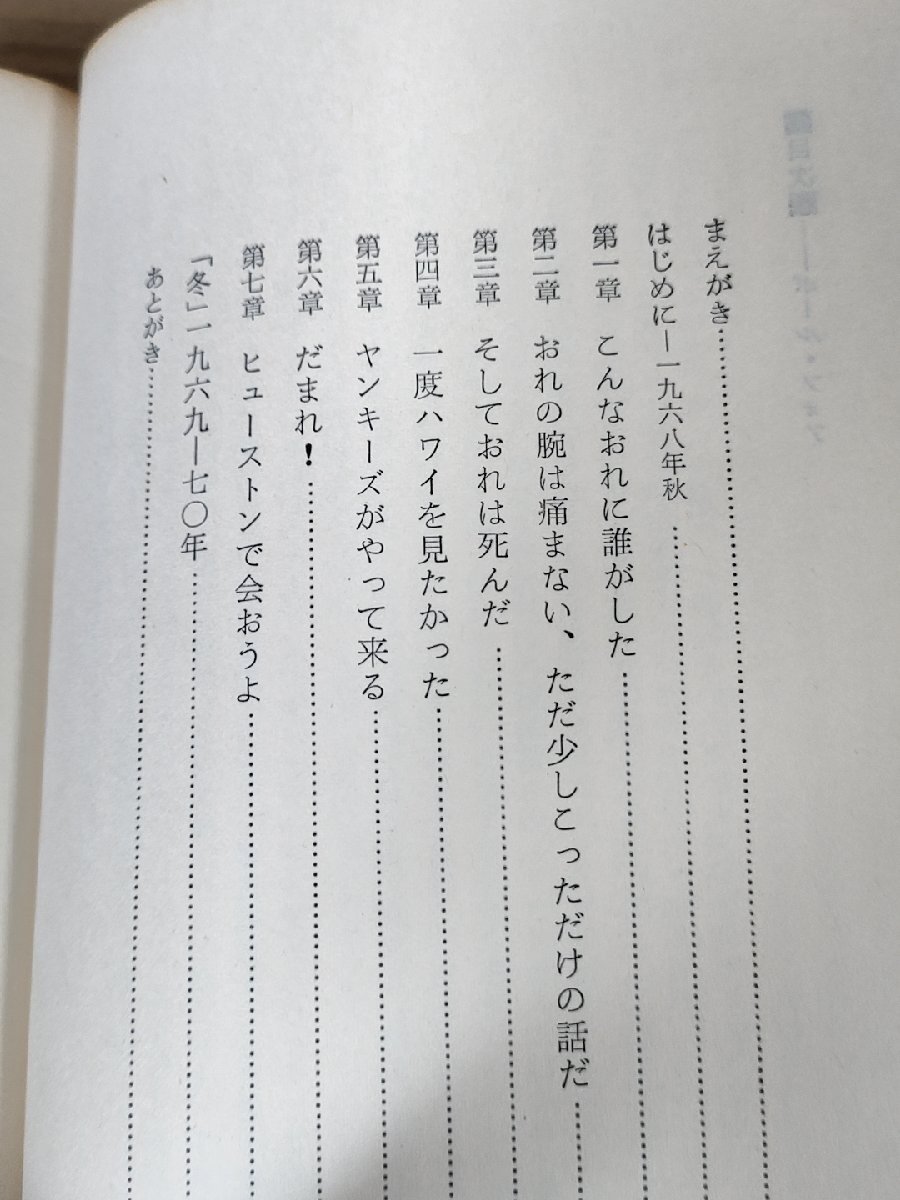 目次 ボール・フォア
まえがき
はじめに―一九六八年秋
第一章 こんなおれに誰がした
第二章 おれの腕は痛まない、ただ少しこっただけの話だ
第三章 そしておれは死んだ
第四章 一度ハワイを見たかった
第五章 ヤンキーズがやって来る
第六章 だまれ！
第七章 ヒューストンで会おうよ
「冬」一九六九―七〇年
あとがき